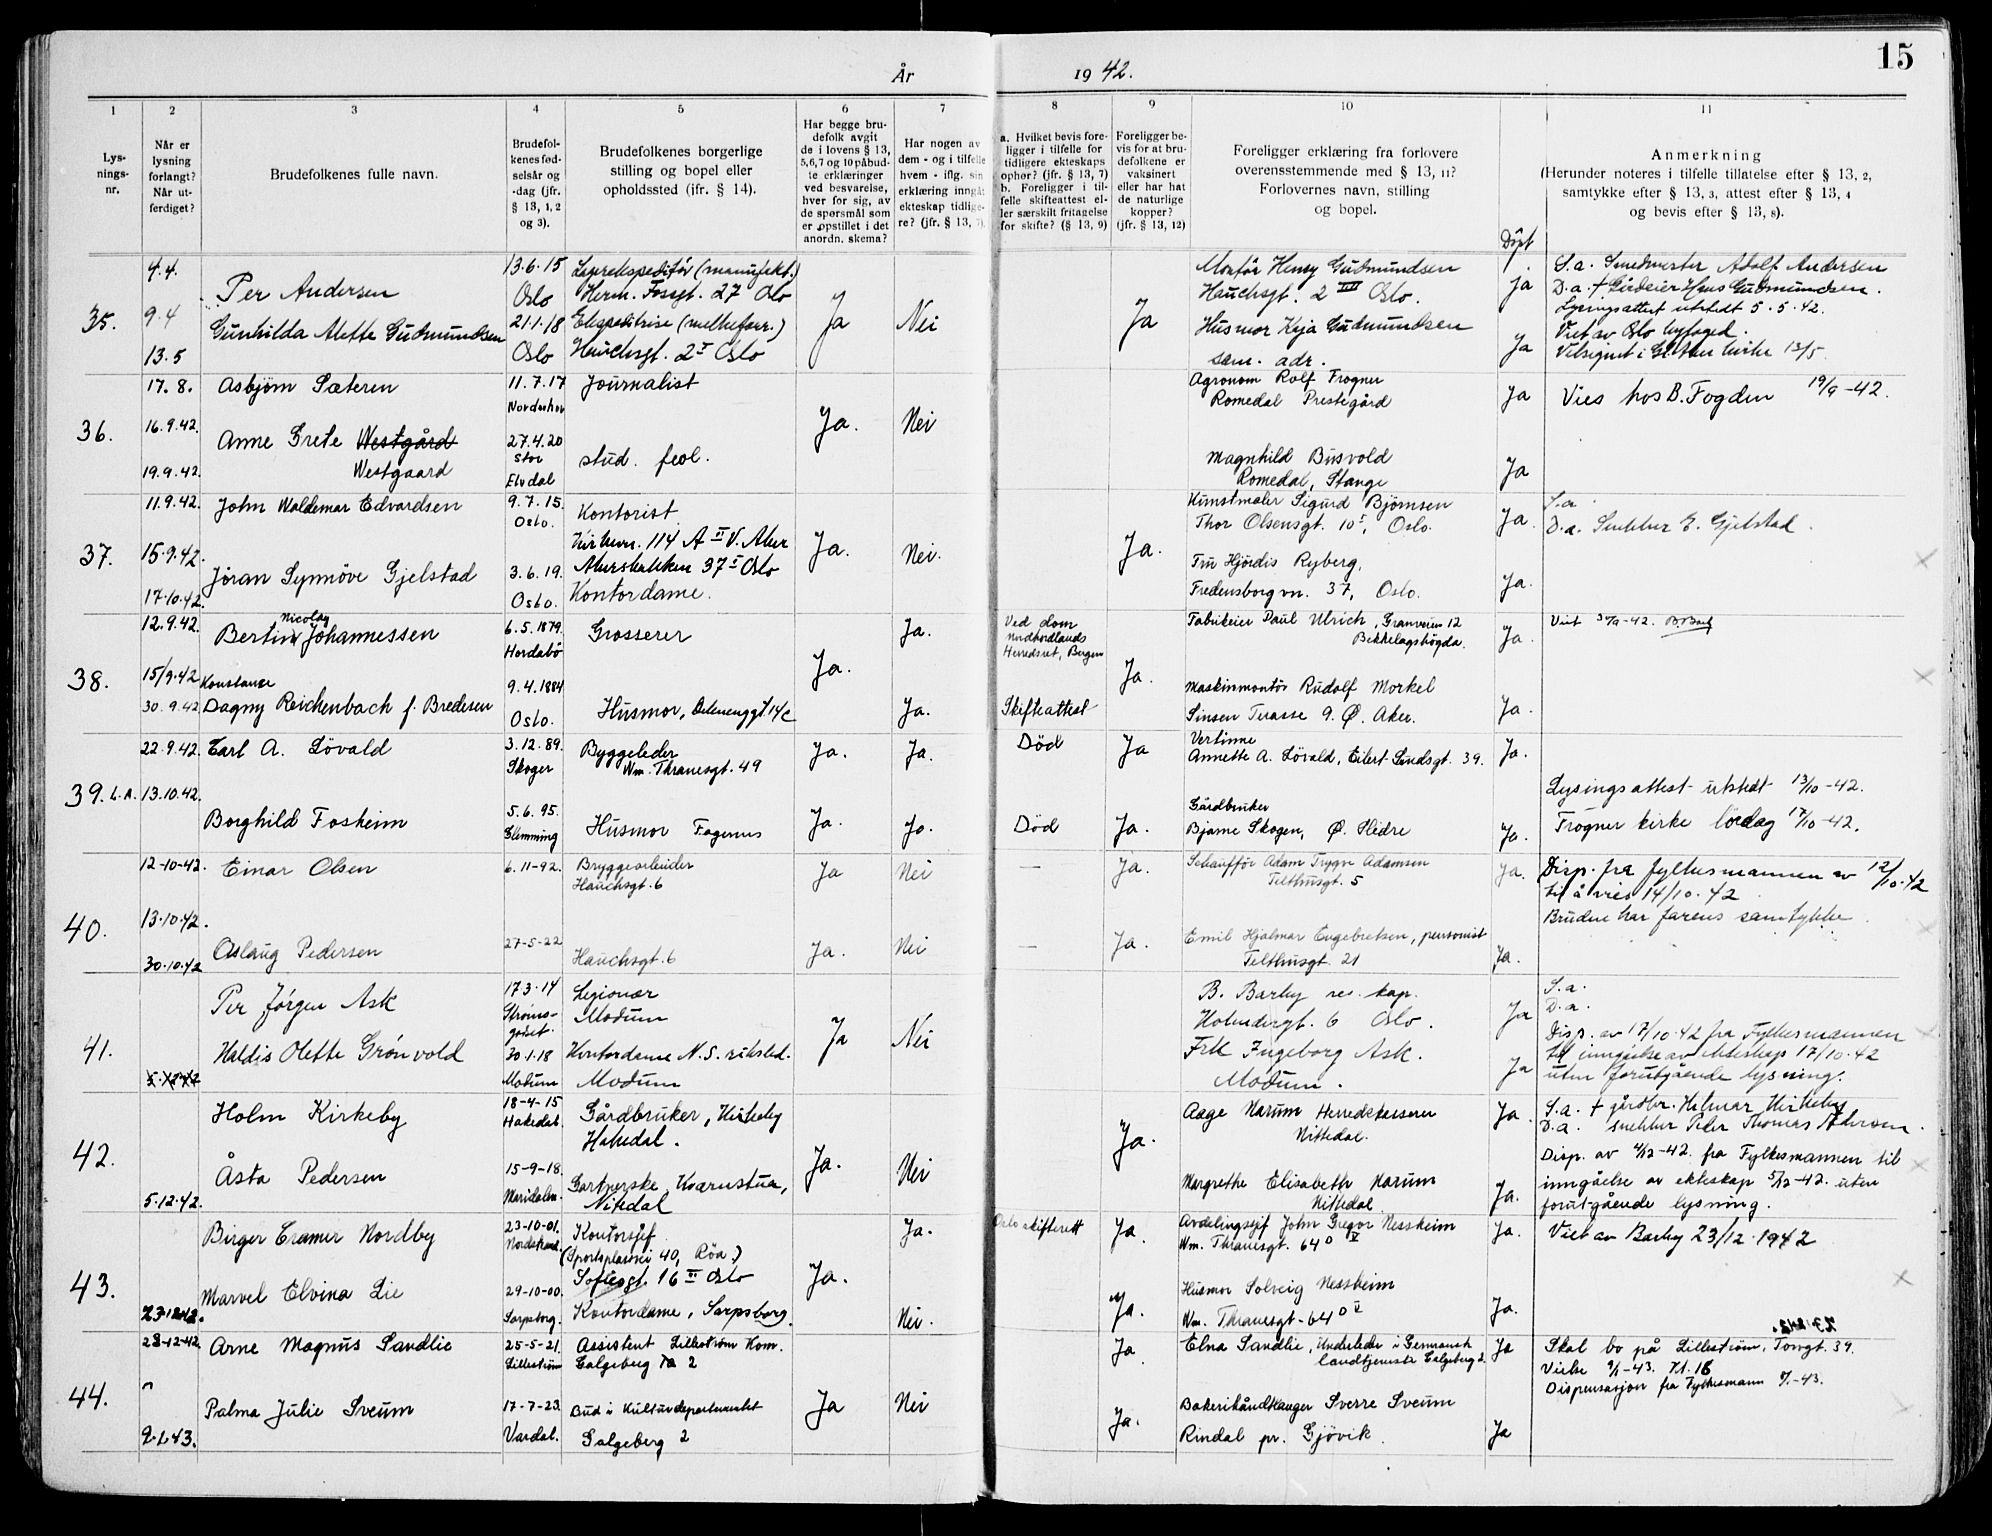 År 1942.
15
1 2 3 4 5 6 7 8 9 10 11
Lysnings-nr.
Når er lysning forlangt? Når utferdiget?
Brudefolkenes fulle navn.
Brudefolkenes fødselsår og -dag (jfr. § 13, 1, 2 og 3).
Brudefolkenes borgerlige stilling og bopel eller opholdssted (ifr. § 14).
Har begge brudefolk avgit de i lovens § 13, 5, 6, 7 og 10 påbudte erklæringer ved besvarelse, hver for sig, av de spørsmål som er opstillet i det anordn. skema?
Har nogen av dem - og i tilfelle hvem - iflg. sin erklæring inngåt ekteskap tidligere? (jfr. § 13, 7)
a. Hvilket bevis foreligger i tilfelle for tidligere ekteskaps ophør? (jfr. § 13, 7)
b. Foreligger i tilfelle skifteattest eller særskilt fritagelse for skifte? (§ 13, 9)
Foreligger bevis for at brudefolkene er vaksinert eller har hat de naturlige kopper? (jfr. § 13, 12)
Foreligger erklæring fra forlovere overensstemmende med § 13, 11? Forlovernes navn, stilling og bopel.
Døpt
Anmerkning
(Herunder noteres i tilfelle tillatelse efter § 13, 2, samtykke efter § 13, 3, attest efter § 13, 4 og bevis efter § 13, 8).
35.
4.4.
9.4
13.5
Per Andersen
13.6.15 Oslo
Lagerekspeditör (manufakt.)
Herm. Fossgt. 27 Oslo
Gunhilda Alette Gudmundsen
21.1.18 Oslo
Ekspeditrise (melkeforr.)
Hauchsgt. 2 I Oslo
Ja Nei Ja
Montör Henry Gudmundsen
Hauchsgt. 2 III Oslo. Ja
Husmor Kaja Gudmundsen
sam. adr. Ja
S.a. Smedmester Adolf Andersen
D.a. + Gårdeier Hans Gudmundsen.
Lysingsattest utstedt 5.5.42.
Viet av Oslo byfoged.
Velsignet i Gl. Aker kirke 13/5
36.
17.8.
16.9.42.
19.9.42.
Asbjørn Sæteren
11.7.17 Norderhov
Journalist
Anne Grete Westgård
Westgaard
27.4.20 Stor Elvdal
stud. feol.
Ja. Nei
Agronom Rolf Frogner
Romedal Prestegård Ja
Magnhild Busvold
Romedal, Stange Ja
Vies hos B. Fogden 19/9-42.
37.
11.9.42.
15.9.42.
17.10.42.
John Waldemar Edvardsen
9.7.15. Oslo.
Kontorist
Kirkevn. 114 A II V. Aker
Jöran Synnöve Gjelstad
3.6.19. Oslo.
Akersbakken 37 I Oslo
Kontordame.
Ja. Nei. Ja.
Kunstmaler Sigurd Bjørnsen
Thor Olsensgt. 10 I, Oslo. Ja.
Fru Hjördis Ryberg,
Fredensborgvn. 37, Oslo. Ja.
S.a.
D.a. Snekker E. Gjelstad.
38.
12.9.42.
15/9.42
30.9.42
Nicolay
Bertin Johannessen
6.5.1879. Hordabö
Grosserer
Konstance
Dagny Reichenbach f. Bredesen
9.4.1884 Oslo.
Husmor, 14c
Ja. Ja. Ja.
Ved dom Nordhordlands Herredsret, Bergen
Skifteattest
Ja.
Fabrikeier Paul Ulrich, Granveien 12
Bekkelagshögda. Ja.
Maskinmontör Rudolf Morkel
Sinsen Terasse 9. Ø. Aker. Ja.
Viet 30/9-42.
39. L.A.
22.9.42.
13.10.42.
Carl A. Lövald
3.12.89. Skoger
Byggeleder
Wm. Thranesgt. 49
Ja. Ja. Död Ja
Vertinne
Annette A. Lövald, Eilert Sundsgt. 39. Ja.
Borghild Fosheim
5.6.95. Slemming
Husmor Fagernes
Ja. Ja. Död Ja.
Gårdbruker
Bjarne Skogen, Ø. Slidre Ja.
Lysingsattest utstedt 13/10-42.
Frogner kirke lördag 17/10-42.
40.
12-10-42.
13.10.42.
30.10.42
Einar Olsen
6.11-92.
Bryggearbeider
Hauchsgt. 6
Ja Nei — Ja.
Schaufför Adam Trygve Adamsen
Telthusgt. 5 Ja.
Aslaug Pedersen
27-5-22
Hauchsgt. 6
Ja. Nei — Ja.
Emil Hjalmar Engebretsen, pensionist
Telthusgt. 21 Ja.
Disp. fra fylkesmannen av 12/10.42
til å vies 14/10.42
Bruden har farens samtykke.
41.
5.12.42
Per Jörgen Ask
17.3.14 Strömsgodset.
Legionær
Modum
Haldis Olette Grönvold
30.1.18 Modum
Kontordame N.S. riksled.
Modum
Ja Nei
B. Barhy res. kap.
Holmbergt. 6 Oslo. Ja
Frk Ingeborg Ask.
Modum. Ja
S.a.
D.a.
Disp. av 17/10.42 fra Fylkesmannen
til inngåelse av ekteskap 17/10.42
uten forutgående lysning.
42.
5.12.42.
Holm Kirkeby
18-4-15 Hakedal.
Gårdbruker, Kirkeby
Hakedal.
Åsta Pedersen
15-9-18. Maridalen.
Gartnerske, Kvernstua,
Nitedal
Ja. Nei Ja.
Aage Narum Herredskasserer
Nittedal. Ja.
Margrethe Elisabeth Narum
Nittedal Ja.
S.a. + gårdbr. Helmer Kirkeby
D.a. snekker Peder Thomas Pedersen.
Disp. av 4/12-42. fra Fylkesmannen til
inngåelse av ekteskap 5/12-42. uten
forutgående lysning.
43.
23.12.42.
Birger Cramer Nordby
23-10-01. Nordstrand.
Kontorsjef
(Sportsplassvei 40, Röa.)
Sofiesgt. 16 VI Oslo
Marvel Elvina Lie
29-10-00. Sarpsborg.
Kontordame, Sarpsborg.
Ja. Ja. Nei.
Oslo skifterett
Ja. Ja.
Avdelingssjef John Gregor Nessheim
Wm. Thranesgt. 64 D V Ja.
Husmor Solveig Nessheim
Wm. Thranesgt. 64 D V Ja.
Viet av Barhy 23/12.1942
44.
28-12-42.
"
9.1.43.
Arne Magnus Sandlie
25-5-21. Lilleström
Assistent Lilleström Kom.
Galgeberg 2
Palma Julie Sveum
17-7-23. Vardal.
Bud i Kulturdepartementet
Galgeberg 2
Ja Nei Ja Ja.
Elna Sandlie, Underleder i Germansk
landtjeneste Galgeberg 2. Ja
Bakerihåndtlanger Sverre Sveum
Rindal pr. Gjövik. Ja
Skal bo på Lilleström, Torvgt. 39.
Vielse 9/1-43. Kl. 16
Dispensasjon fra Fylkesmann -43.